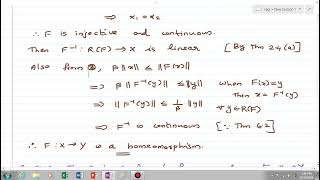 ⇒ x₁ = x₂
∴ F is injective and continuous.
Then F⁻¹: R(F) → X is linear [By thm 2.4(a)]
Also from ②, β‖x‖ ≤ ‖F(x)‖
⇒ β‖F⁻¹(y)‖ ≤ ‖y‖ when F(x)=y
then x = F⁻¹(y)
⇒ ‖F⁻¹(y)‖ ≤ 1/β ‖y‖ ∀ y∈R(F)
⇒ F⁻¹ is continuous [∵ Thm 6.2]
∴ F: X → Y is a homeomorphism.